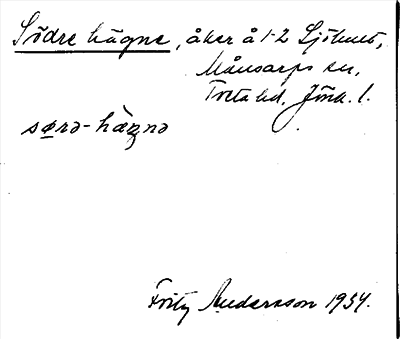 Södre hägne, åker å 1-2 Sjöhult,
Månsarps sn,
Tveta hd, Jönk. l.
sø̱rə-hæ̀gnə
Fritz Andersson 1934.